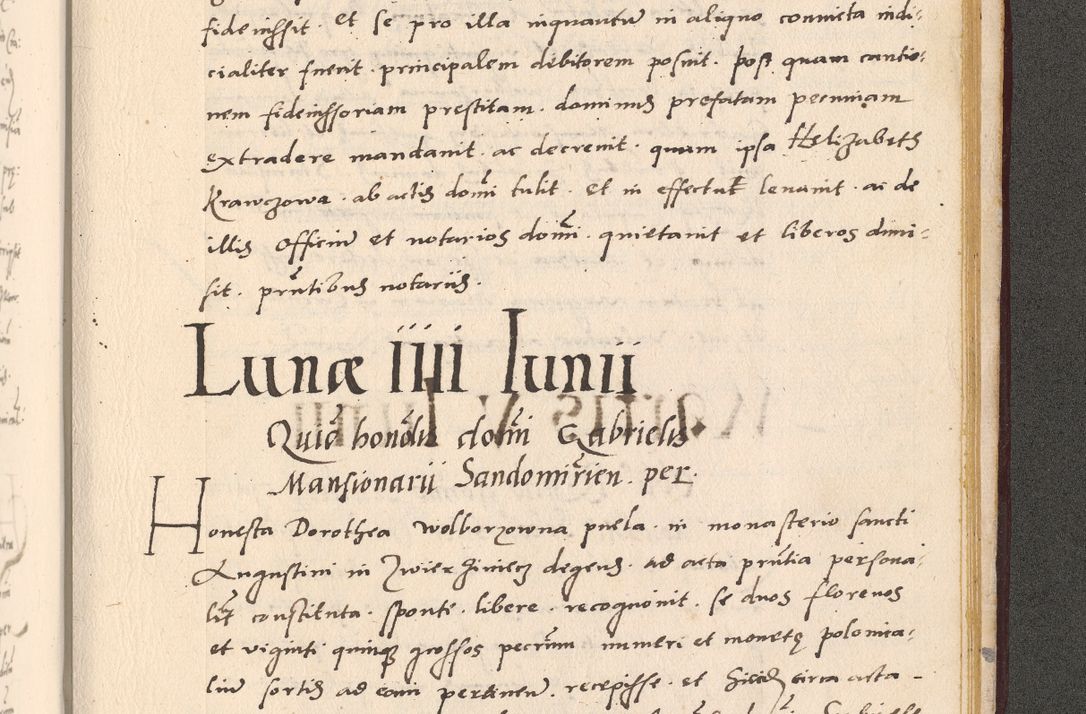 fideiussit · et se pro illa inquantum in aliquo convicta iudi:
cialiter fuerit · principalem debitorem posuit · post quam cautio:
nem fideiussoriam prestitam · dominus prefatam pecuniam
extradere mandavit · ac decrevit · quam ipsa Helizabeth
Krawczowa · ab actis domi tulit · et in effectu levavit · ac de
illis officium et notarios domi · quietavit et liberos dimi:
sit · pntibus notariis ·
Lunæ iiii Iunii
Quid honoli domi Gabrielis
Mansionarii Sandomirien · per ·
Honesta Dorothea Wolborzowna puela · in monasterio sancti
Augustini in Zwierziniecz degens · ad acta pntia persona:
lit constituta · sponte · libere · recognovit · se duos florenos
et viginti quinque grossos pecuniarum numeri et monetę polonica:
lium sortis ad eam pertinen · recepisse · et circa acta -